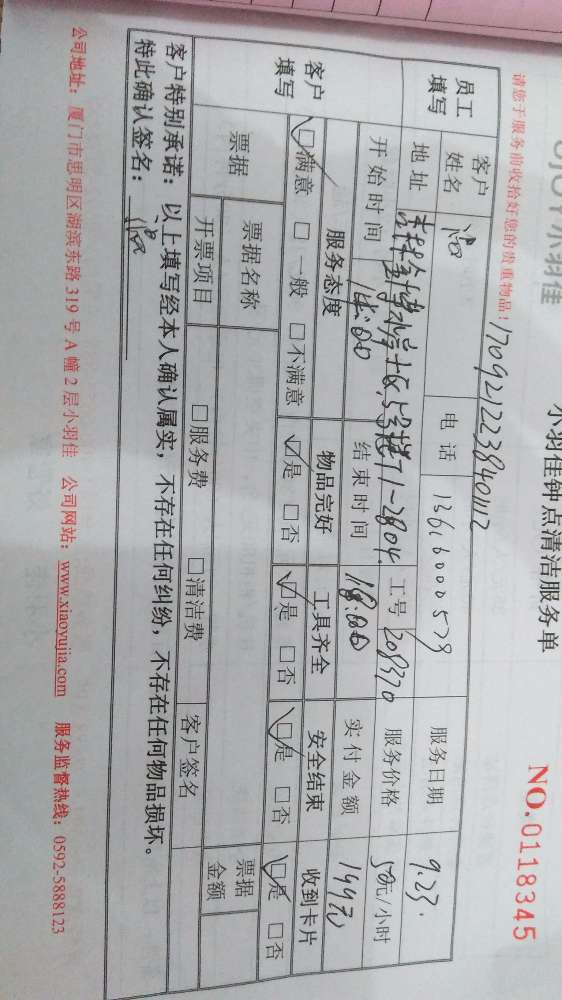 小羽佳
小羽佳钟点清洁服务单
NO.0118345
请您于服务前收拾好您的贵重物品!
17092122384012
员工填写
客户姓名
电话 13616000579
服务日期 9.23.
地址
5号楼T1-2804.
工号 208370
服务价格 50元/小时
开始时间
结束时间 18:00
实付金额 199元
客户填写
服务态度 物品完好 工具齐全 安全结束 收到卡片
☑满意 □一般 □不满意 ☑是 □否 ☑是 □否 ☑是 □否 ☑是 □否
票据
票据名称
票据金额
开票项目 □服务费 □清洁费 客户签名
客户特别承诺:以上填写经本人确认属实,不存在任何纠纷,不存在任何物品损坏。
特此确认签名:
公司地址:厦门市思明区湖滨东路319号A幢2层小羽佳 公司网站:www.xiaoyujia.com 服务监督热线:0592-5888123